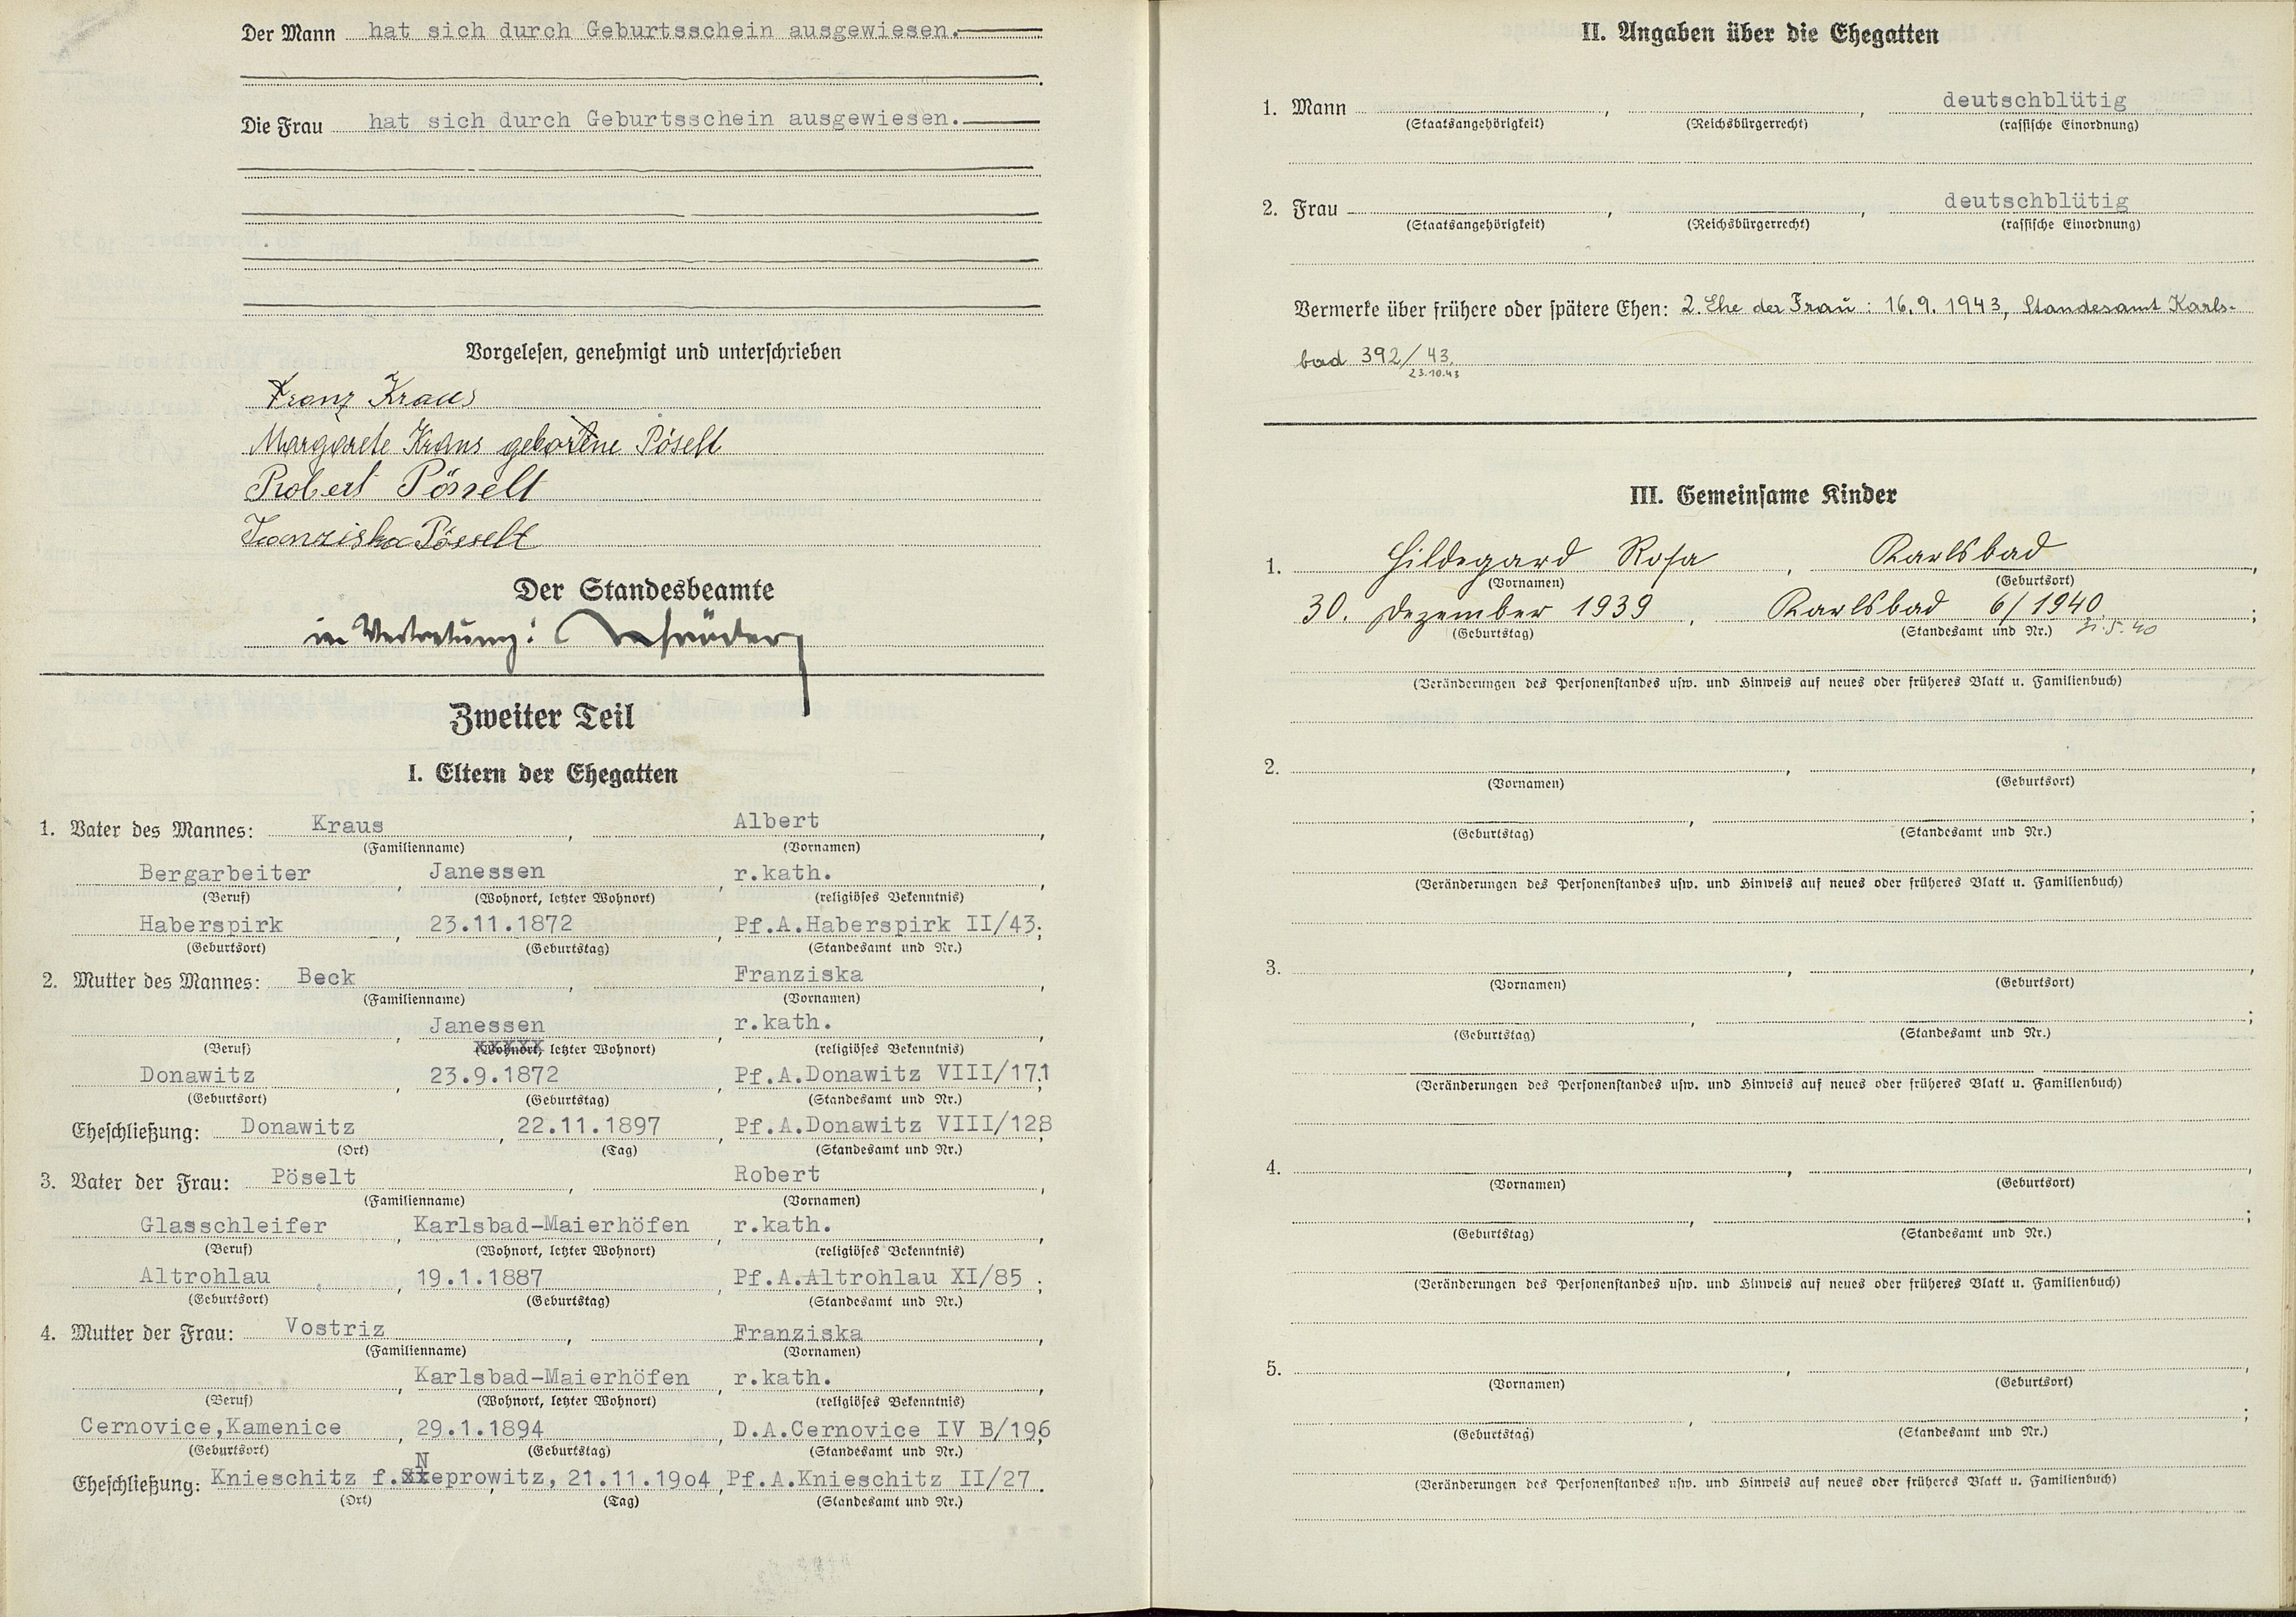 Der Mann hat sich durch Geburtsschein ausgewiesen.
Die Frau hat sich durch Geburtsschein ausgewiesen.
Vorgelesen, genehmigt und unterschrieben
Franz Kraus
Margarete Kraus geborene Pöselt
Robert Pösselt
Franziska Pösselt
Der Standesbeamte
in Vertretung:
Zweiter Teil
I. Eltern der Ehegatten
1. Vater des Mannes: Kraus, Albert,
(Familienname) (Vornamen)
Bergarbeiter, Janessen, r.kath.,
(Beruf) (Wohnort, letzter Wohnort) (religiöses Bekenntnis)
Haberspirk, 23.11.1872, Pf.A.Haberspirk II/43;
(Geburtsort) (Geburtstag) (Standesamt und Nr.)
2. Mutter des Mannes: Beck, Franziska,
(Familienname) (Vornamen)
, Janessen, r.kath.,
(Beruf) (Wohnort, letzter Wohnort) (religiöses Bekenntnis)
Donawitz, 23.9.1872, Pf.A.Donawitz VIII/171;
(Geburtsort) (Geburtstag) (Standesamt und Nr.)
Eheschließung: Donawitz, 22.11.1897, Pf.A.Donawitz VIII/128;
(Ort) (Tag) (Standesamt und Nr.)
3. Vater der Frau: Pöselt, Robert,
(Familienname) (Vornamen)
Glasschleifer, Karlsbad-Maierhöfen, r.kath.,
(Beruf) (Wohnort, letzter Wohnort) (religiöses Bekenntnis)
Altrohlau, 19.1.1887, Pf.A.Altrohlau XI/85;
(Geburtsort) (Geburtstag) (Standesamt und Nr.)
4. Mutter der Frau: Vostriz, Franziska,
(Familienname) (Vornamen)
, Karlsbad-Maierhöfen, r.kath.,
(Beruf) (Wohnort, letzter Wohnort) (religiöses Bekenntnis)
Cernovice,Kamenice, 29.1.1894, D.A.Cernovice IV B/196;
(Geburtsort) (Geburtstag) (Standesamt und Nr.)
Eheschließung: Knieschitz f.Neprowitz, 21.11.19o4, Pf.A.Knieschitz II/27.
(Ort) (Tag) (Standesamt und Nr.)
II. Angaben über die Ehegatten
1. Mann , , deutschblütig
(Staatsangehörigkeit) (Reichsbürgerrecht) (rassische Einordnung)
2. Frau , , deutschblütig
(Staatsangehörigkeit) (Reichsbürgerrecht) (rassische Einordnung)
Vermerke über frühere oder spätere Ehen: 2. Ehe der Frau: 16.9.1943, Standesamt Karls-
bad 392/43.
23.10.43
III. Gemeinsame Kinder
1. Hildegard Rosa, Karlsbad,
(Vornamen) (Geburtsort)
30. Dezember 1939, Karlsbad 6/1940;
(Geburtstag) (Standesamt und Nr.) 31.5.40
(Veränderungen des Personenstandes usw. und Hinweis auf neues oder früheres Blatt u. Familienbuch)
2. , ,
(Vornamen) (Geburtsort)
, ;
(Geburtstag) (Standesamt und Nr.)
(Veränderungen des Personenstandes usw. und Hinweis auf neues oder früheres Blatt u. Familienbuch)
3. , ,
(Vornamen) (Geburtsort)
, ;
(Geburtstag) (Standesamt und Nr.)
(Veränderungen des Personenstandes usw. und Hinweis auf neues oder früheres Blatt u. Familienbuch)
4. , ,
(Vornamen) (Geburtsort)
, ;
(Geburtstag) (Standesamt und Nr.)
(Veränderungen des Personenstandes usw. und Hinweis auf neues oder früheres Blatt u. Familienbuch)
5. , ,
(Vornamen) (Geburtsort)
, ;
(Geburtstag) (Standesamt und Nr.)
(Veränderungen des Personenstandes usw. und Hinweis auf neues oder früheres Blatt u. Familienbuch)